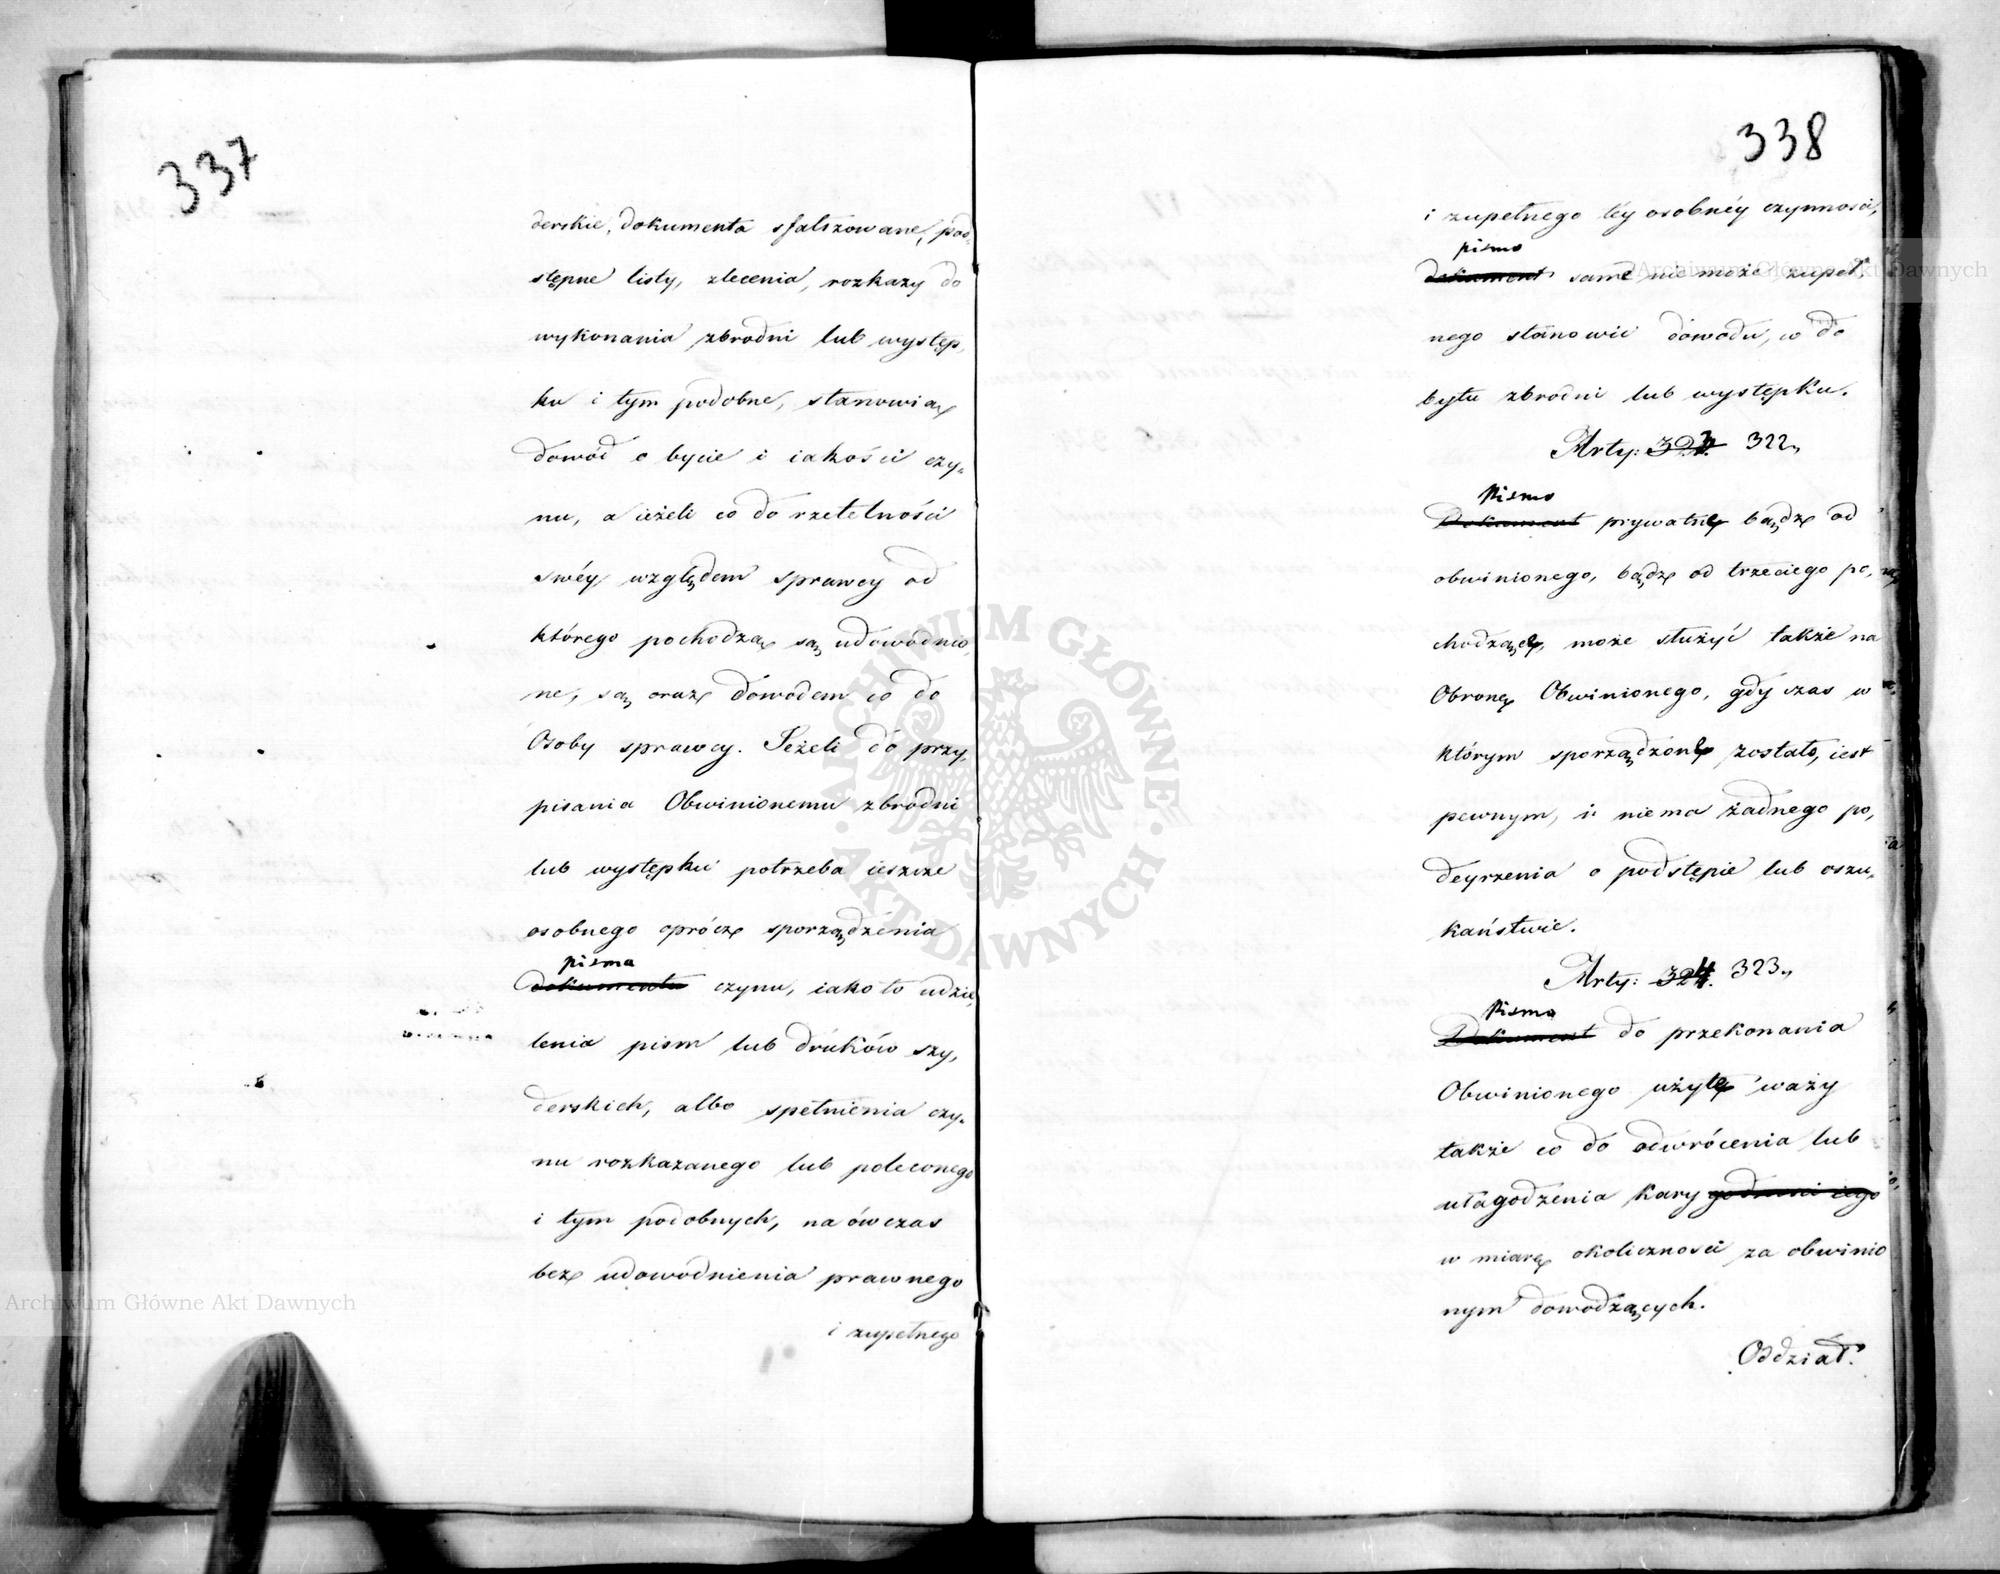 337
derskie, dokumenta sfałszowane, pod,
stępne listy, zlecenia, rozkazy do
wykonania zbrodni lub występ,
ku i tym podobne, stanowią
dowód o bycie i iakości czy,
nu, a ieżeli co do rzetelności
swéy względem sprawcy od
którego pochodzą są udowodnio,
ne, są oraz dowodem co do
Osoby sprawcy. Jeżeli do przy,
pisania Obwinionemu zbrodni
lub występku potrzeba ieszcze
osobnego oprócz sporządzenia
pisma
dokumentu czynu, iako to udzie,
lenia pism lub druków szy,
derskich, albo spełnienia czy,
nu rozkazanego lub poleconego
i tym podobnych, na ówczas
bez udowodnienia prawnego
i zupełnego
338
i zupełnego téy osobnéy czynności,
pismo
dokument same nie może zupeł,
nego stanowić dowodu, co do
bytu zbrodni lub występku.
Arty: 323. 322.
Pismo
Dokument prywatne bądź od
obwinionego, bądź od trzeciego po,
chodzące, może służyć także na
Obronę Obwinionego, gdy czas w
którym sporządzone zostało, iest
pewnym, i niema żadnego po,
deyrzenia o podstępie lub oszu,
kaństwie.
Arty: 324. 323.
Pismo
Dokument do przekonania
Obwinionego użyte waży
także co do odwrócenia lub
ułagodzenia kary godności iego
w miarę okoliczności za obwinio
nym dowodzących.
Oddział.
ARCHIWUM GŁÓWNE · AKT DAWNYCH ·
Archiwum Główne Akt Dawnych
Archiwum Główne Akt Dawnych